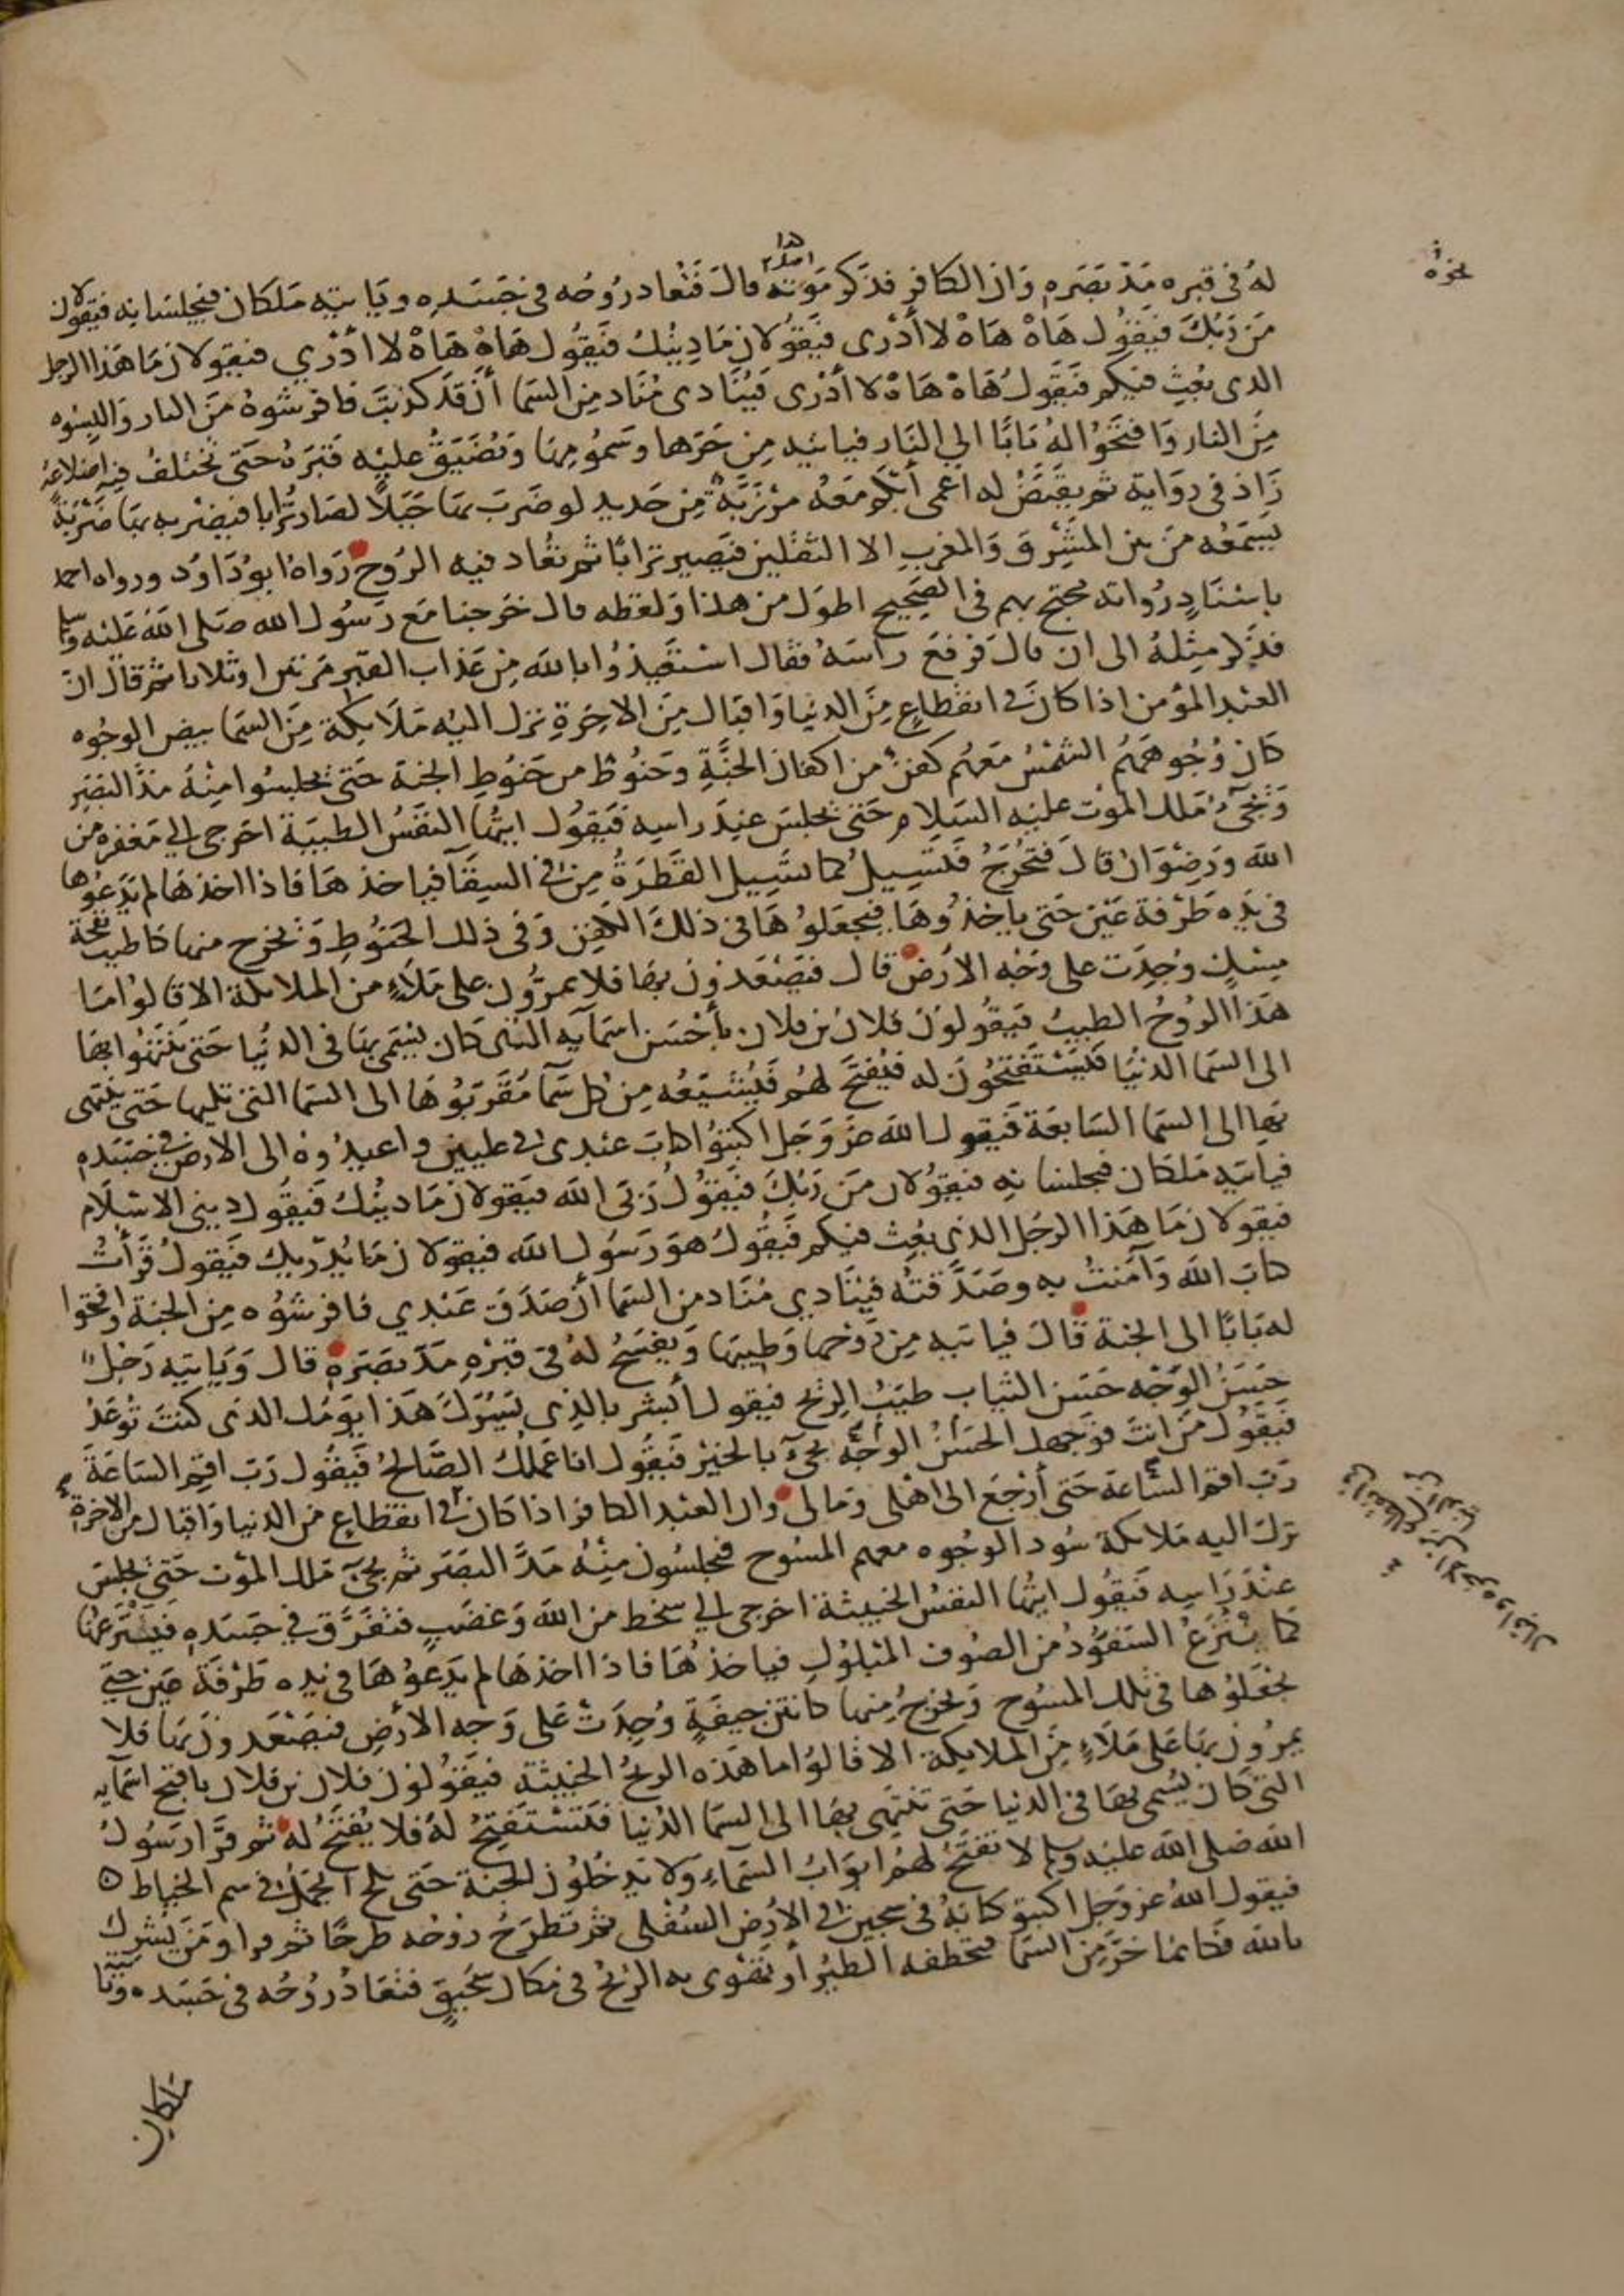 له في قبره مد بصره وان الكافر فذكر موته قال فتعاد روحه في جسده وياتيه ملكان فيجلسانه فيقولان
من ربك فيقول هاه هاه لا أدرى فيقولان ما دينك فيقول هاه هاه لا ادري فيقولان ما هذا الرجل
الذى بعث فيكم فيقول هاه هاه لا أدرى فينادى مناد من السما أن قد كذبت فافرشوه من النار والبسوه
من النار وافتحوا له بابا الي النار فياتيه من حرها وسمومها ويضيق عليه قبره حتى تختلف فيه اضلاعه
زاد في رواية ثم يقيض له اعمى أبكم معه مرزبة من حديد لو ضرب بها جبلا لصار ترابا فيضربه بها ضربة
يسمعه من بين المشرق والمغرب الا الثقلين فيصير ترابا ثم تعاد فيه الروح رواه ابو داود ورواه احمد
باسناد رواته محتج بهم في الصحيح اطول من هذا ولفظه قال خرجنا مع رسول الله صلى الله عليه وسلم
فذكر مثله الى ان قال فرفع راسه فقال استعيذوا بالله من عذاب القبر مرتين او ثلاثا ثم قال ان
العبد المؤمن اذا كان في انقطاع من الدنيا واقبال من الاخرة نزل اليه ملايكة من السما بيض الوجوه
كان وجوههم الشمس معهم كفن من اكفان الجنة وحنوط من حنوط الجنة حتى يجلسوا منه مد البصر
ويجىء ملك الموت عليه السلام حتى يجلس عند راسه فيقول ايتها النفس الطيبة اخرجى الي مغفرة من
الله ورضوان قال فتخرج فتسيل كما تسيل القطرة من في السقا فياخذها فاذا اخذها لم يدعوها
في يده طرفة عين حتى ياخذوها فيجعلوها في ذلك الكفن وفى ذلك الحنوط ويخرج منها كاطيب نفحة
مسك وجدت على وجه الارض قال فيصعدون بها فلا يمرون على ملاء من الملايكة الا قالوا ما
هذا الروح الطيب فيقولون فلان بن فلان بأحسن اسمآيه التى كان يسمى بها في الدنيا حتى ينتهوا بها
الى السما الدنيا فيستفتحون له فيفتح لهم فيشيعه من كل سمآ مقربوها الى السما التي تليها حتى ينتهى
بها الى السما السابعة فيقول الله عز وجل اكتبوا كتاب عبدى في عليين واعيدوه الى الارض في جسده
فياتيه ملكان فيجلسانه فيقولان من ربك فيقول ربى الله فيقولان ما دينك فيقول دينى الاسلام
فيقولان ما هذا الرجل الذى بعث فيكم فيقول هو رسول الله فيقولان ما يدريك فيقول قرأت
كتاب الله وآمنت به وصدقته فينادي مناد من السما أن صدق عبدي فافرشوه من الجنة وافتحوا
له بابا الى الجنة قال فياتيه من روحها وطيبها ويفسح له في قبره مد بصره قال وياتيه رجل
حسن الوجه حسن الثياب طيب الريح فيقول أبشر بالذى يسرك هذا يومك الذى كنت توعد
فيقول من انت فوجهك الحسن الوجه يجىء بالخير فيقول انا عملك الصالح فيقول رب اقم الساعة
رب اقم الساعة حتى أرجع الى اهلى ومالى وان العبد الكافر اذا كان في انقطاع من الدنيا واقبال من الاخرة
نزل اليه ملايكة سود الوجوه معهم المسوح فيجلسون منه مد البصر ثم يجىء ملك الموت حتى يجلس
عند راسه فيقول ايتها النفس الخبيثة اخرجى الي سخط من الله وغضب فتفرق في جسده فينتزعها
كما ينتزع السفود من الصوف المبلول فياخذها فاذا اخذها لم يدعوها في يده طرفة عين حتى
يجعلوها في تلك المسوح ويخرج منها كانتن جيفة وجدت على وجه الارض فيصعدون بها فلا
يمرون بها على ملاء من الملايكة الا قالوا ما هذه الريح الخبيثة فيقولون فلان بن فلان باقبح اسمآيه
التى كان يسمى بها في الدنيا حتى تنتهى بها الى السما الدنيا فتستفتح له فلا يفتح له ثم قرا رسول
الله صلى الله عليه وسلم لا تفتح لهم ابواب السمآء ولا يدخلون الجنة حتى يلج الجمل في سم الخياط
فيقول الله عز وجل اكتبوا كتابه في سجين في الارض السفلى ثم تطرح روحه طرحا ثم قرا ومن يشرك
بالله فكانما خر من السما فتخطفه الطير أو تهوى به الريح في مكان سحيق فتعاد روحه في جسده وياتيه
ملكان